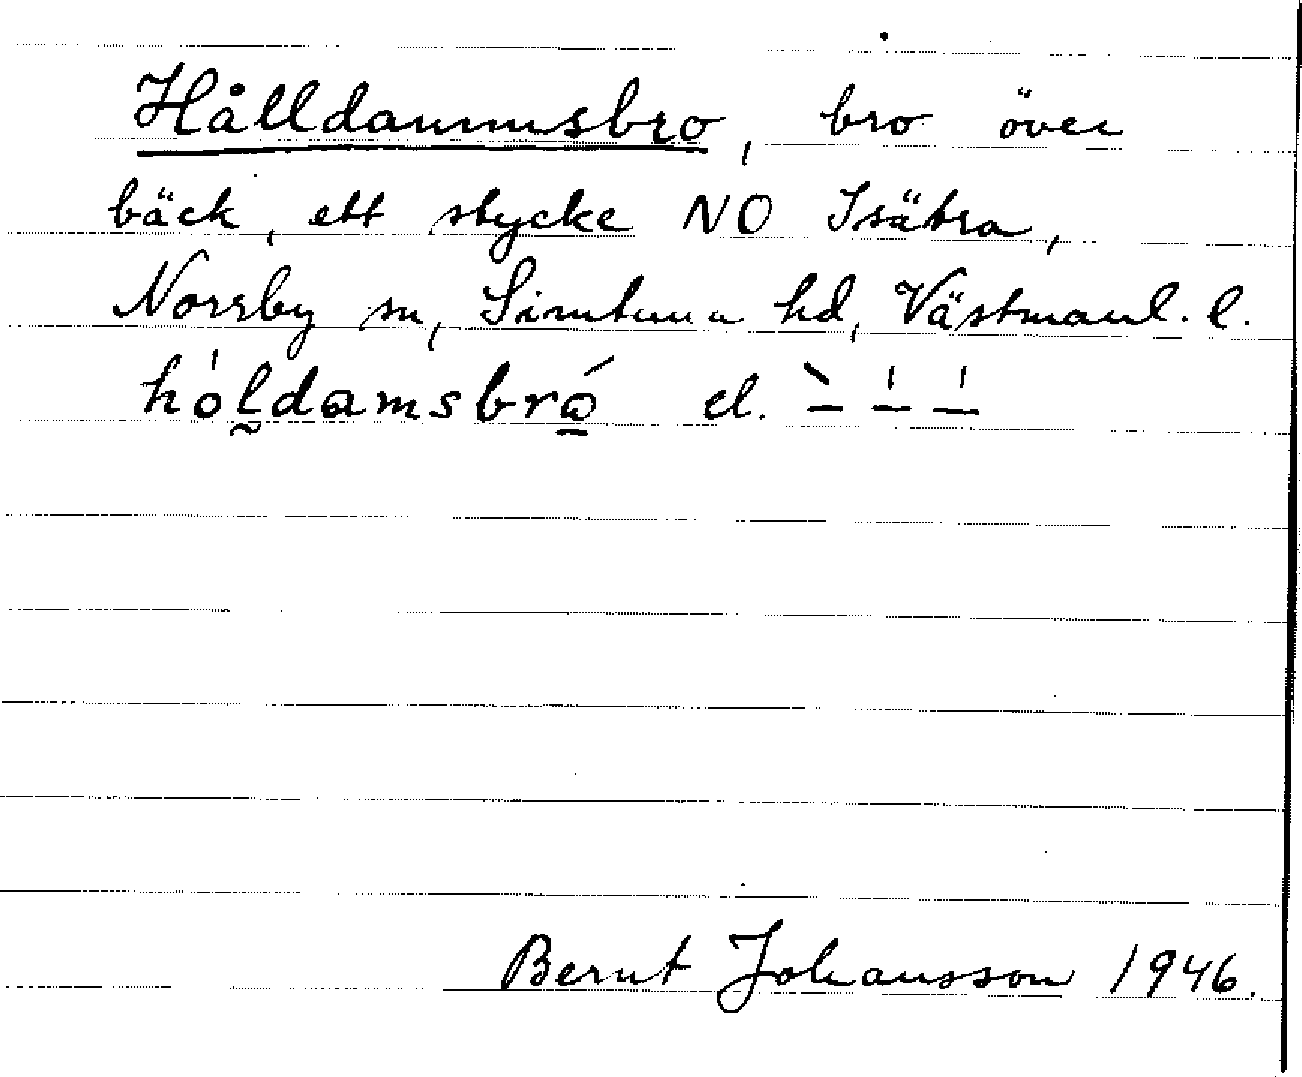 Hålldammsbro, bro över
bäck, ett stycke NO Isätra,
Norrby sn, Simtuna hd, Västmanl. l.
hóldamsbró el. ` ' '
Bernt Johansson 1946.